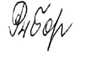 Выбор